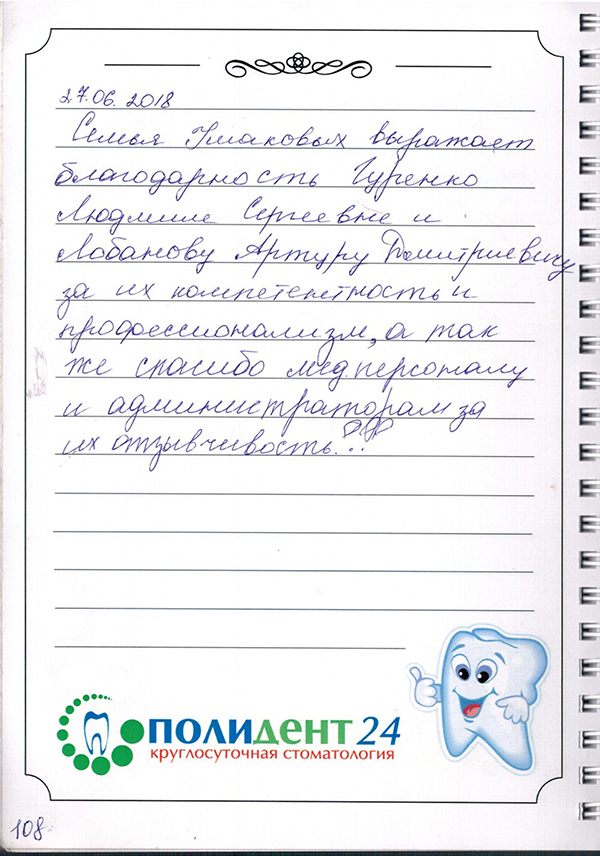 27.06.2018
Семья Ушаковых выражает
благодарность Гуренко
Людмиле Сергеевне и
Лобанову Артуру Дмитриевичу
за их компетентность и
профессионализм, а так
же спасибо мед.персоналу
и администраторам за
их отзывчивость!!!
ПОЛИДЕНТ 24
круглосуточная стоматология
108